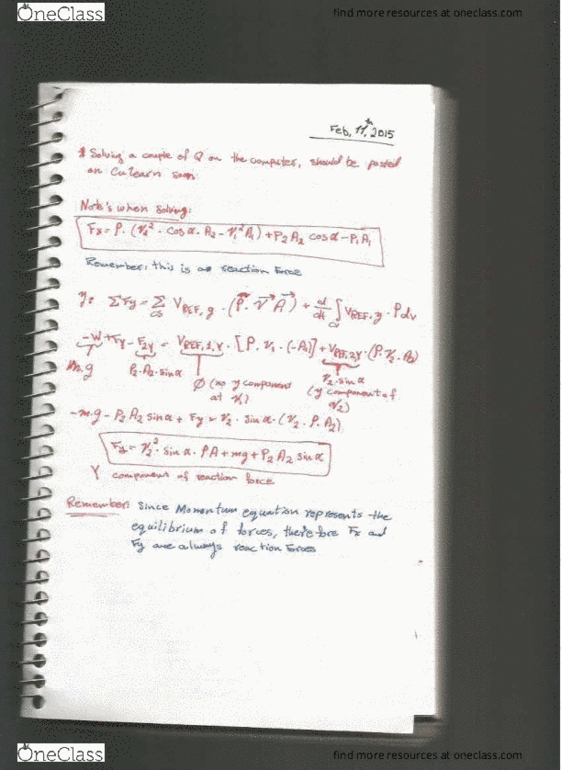 OneClass find more resources at oneclass.com
Feb, 11th, 2015
Solving a couple of Q on the computer, should be posted
on CuLearn soon.
Note's when solving:
Fx = ρ · (V₂² · cos α · A₂ − V₁² A₁) + P₂ A₂ cos α − P₁ A₁
Remember: this is a reaction force
y: ΣFy = Σ_cs V_REF, y · (ρ · V⃗ A⃗) + d/dt ∫ V_REF, y · ρ dv
−W + Fy − F2y = V_REF,1,Y · [ρ · V₁ · (−A₁)] + V_REF,2Y · (ρ · V₂ · A₂)
m.g P₂·A₂·sin α Ø (no y component at V₁) V₂·sin α (y component of V₂)
−m·g − P₂ A₂ sin α + Fy = V₂ · sin α · (V₂ · ρ · A₂)
Fy = V₂² · sin α · ρA + mg + P₂ A₂ sin α
Y component of reaction force
Remember: Since Momentum equation represents the
equilibrium of forces, therefore Fx and
Fy are always reaction forces
OneClass find more resources at oneclass.com